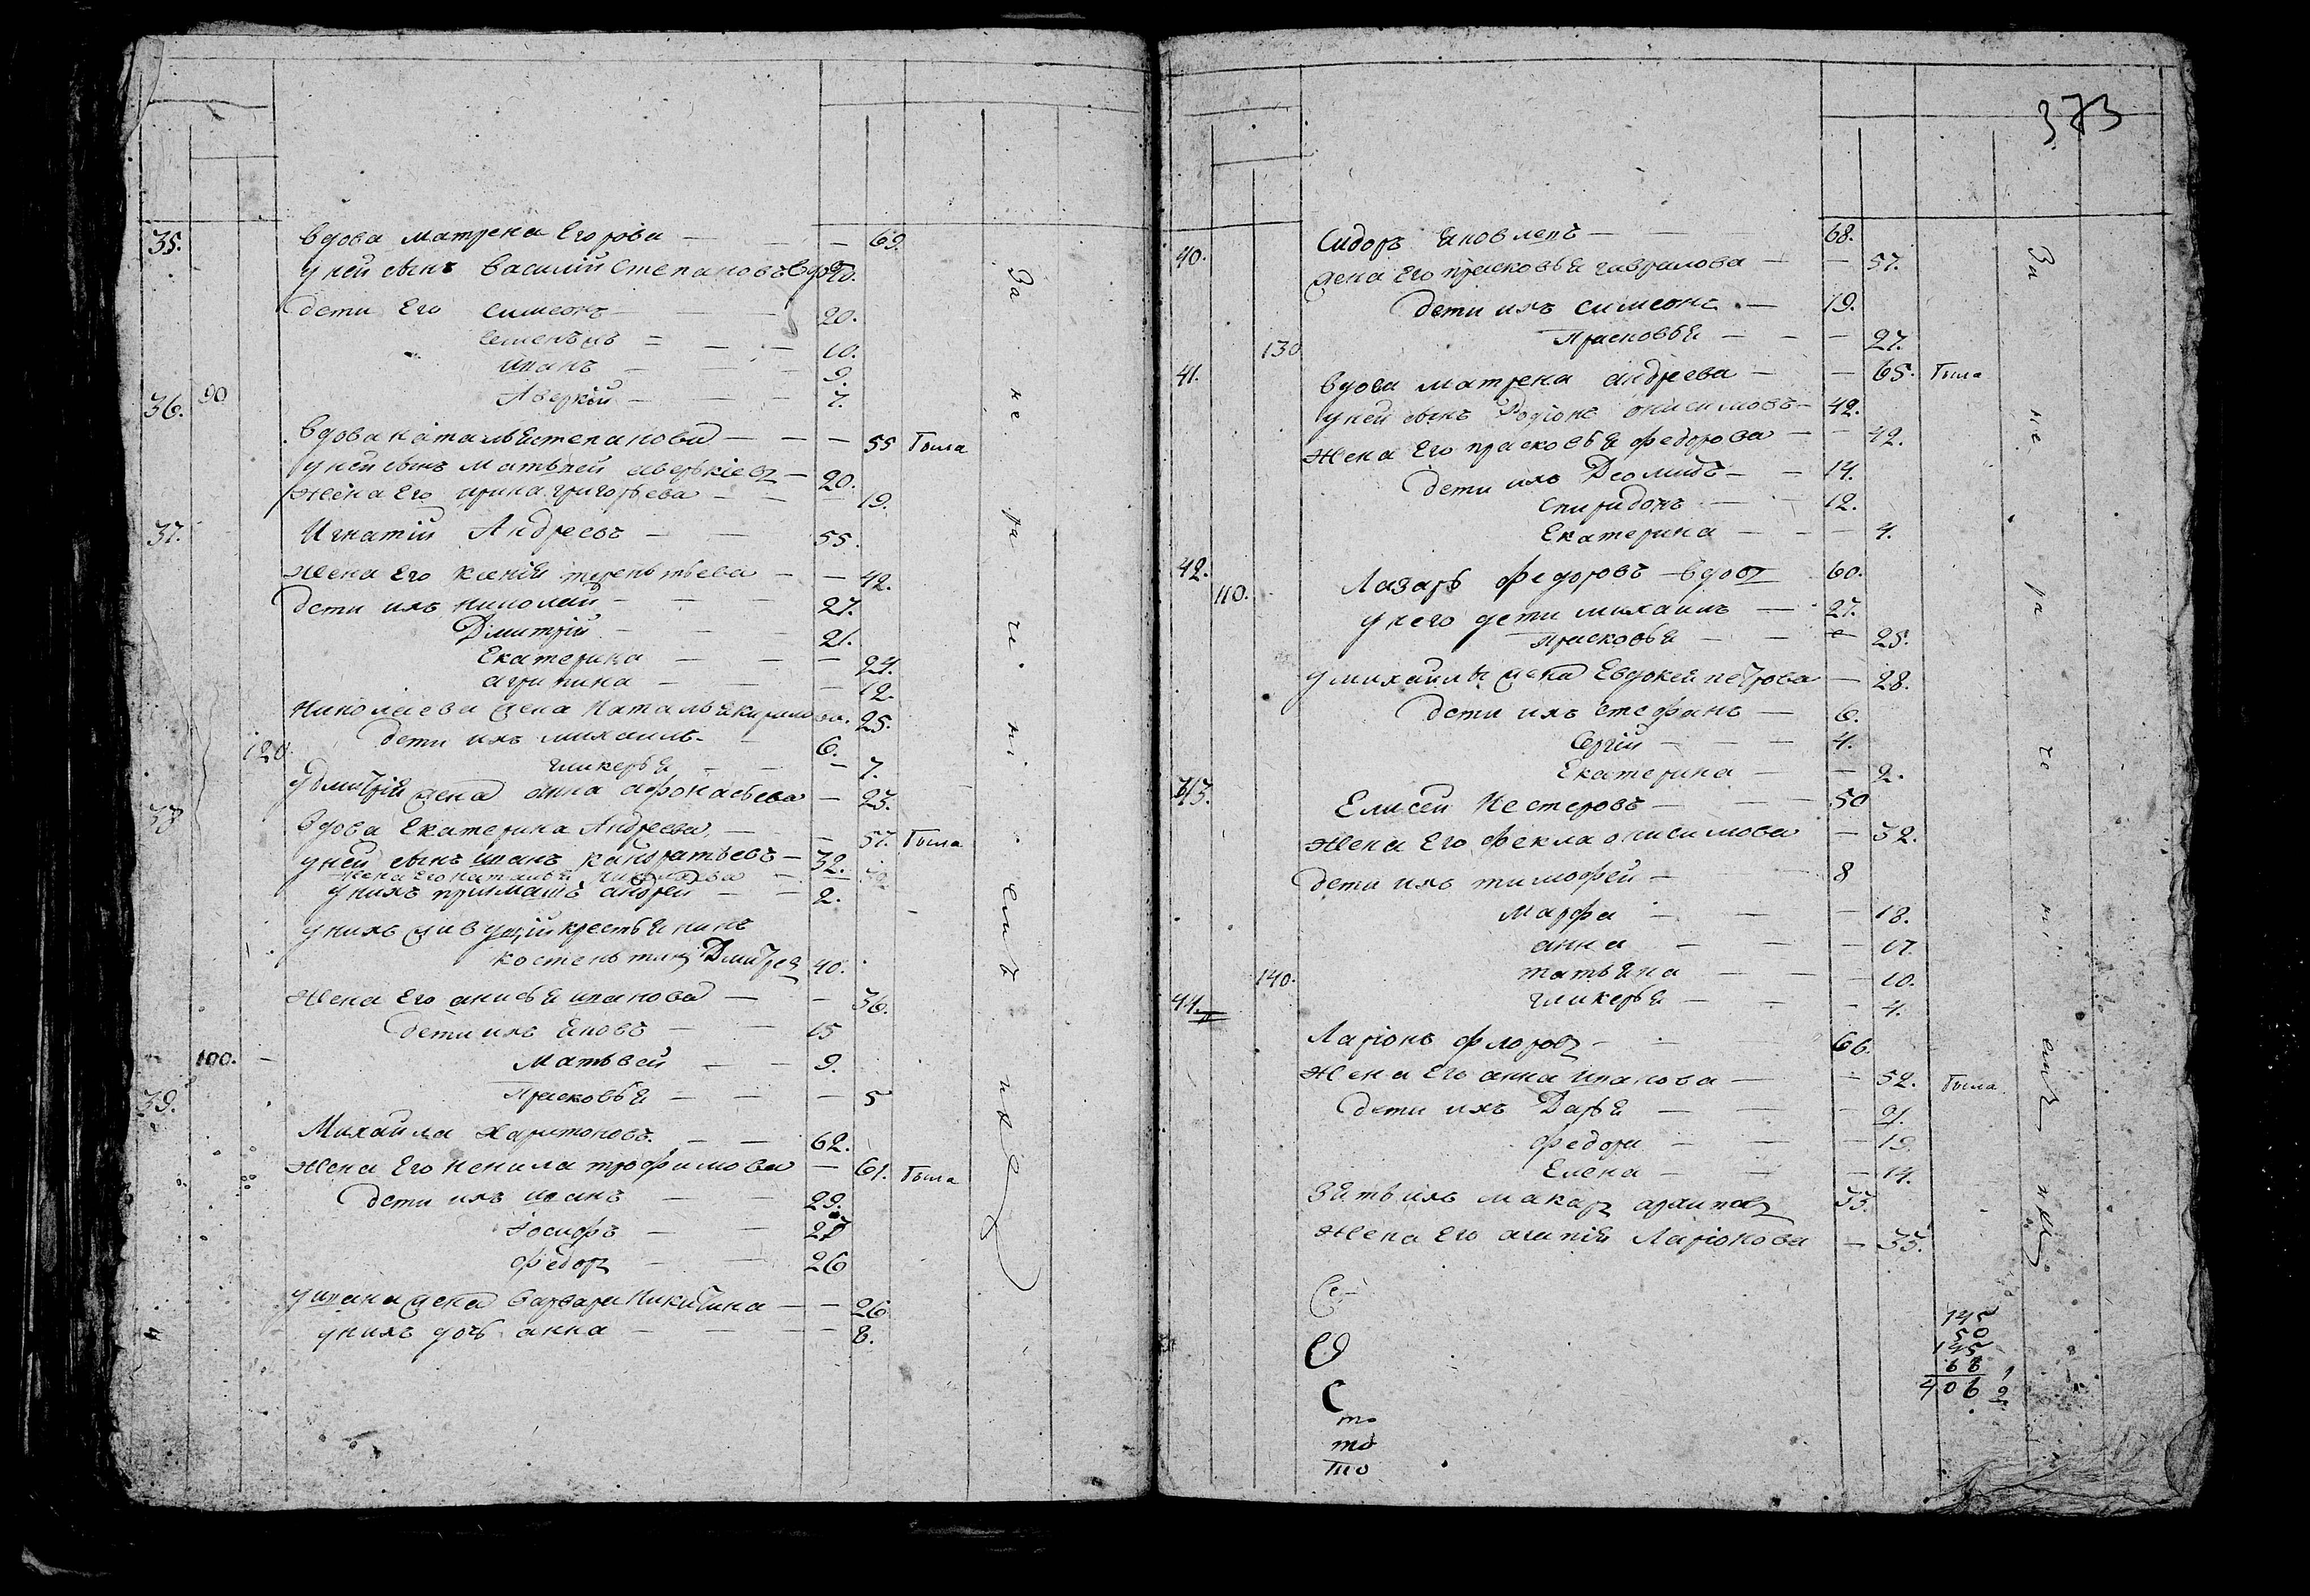 35. вдова матрена Егорова — — — 69.
у ней сынъ василий степановъ вдовъ 50.
дети Его симеонъ — — — 20.
— — 10.
иванъ — — — 9.
90 Аверкий — — — 7.
36. вдова наталья степанова — — — 55 была
у ней сынъ матвей аверкиевъ — 20.
жена Его ирина григорьева — — — 19.
37. Игнатий Андреевъ — — 55.
жена Его ксения терентьева — — 42.
дети ихъ николай — — — 27.
Димитрий — — — 21.
Екатерина — — — 24.
агрипина — — — 12.
николаева жена наталья 25.
дети ихъ михаилъ — — 6.
120. гликерья — — — 7.
у дмитрия жена анна афонасьева — 23.
38 вдова Екатерина Андреева — — 57. была
у ней сынъ иванъ кандратьевъ — 32.
жена Его наталья — —
у нихъ приимашъ андрей — — 2.
у нихъ живущий крестьянинъ
костентинъ Дмитрев 40.
жена Его анисья иванова — — 36.
дети ихъ яковъ — — 15
100. матвей — — 9.
прасковья — — — 5
39. Михаила харитоновъ — — 62.
жена Его ненила трофимова — 61. была
дети ихъ иванъ — — 29.
иосифъ — — 27
федоръ — — 26
у ивана жена варвара никитина — — 26
у нихъ дочь анна — — — 8.
за не ра че ни. емъ ихъ
373
40. Сидоръ яковлевъ — — 68.
жена Его прасковья гаврилова — — 57.
дети ихъ симеонъ — 19.
130 прасковья — — — 27.
41. вдова матрена андреева — — 65. была
у ней сынъ Родионъ онисимовъ — 42.
жена Его прасковья федорова — — 42.
дети ихъ Деомидъ — — 14.
спиридонъ — — 12.
Екатерина — — — 4.
42. Лазарь федоровъ — вдовъ 60.
110. у него дети михаилъ — 27.
прасковья — — — 25.
у михаилы жена Евдокея петрова — 28.
дети ихъ стефанъ — 6.
сергий — — — 4.
Екатерина — — 2.
43. Елисей нестеровъ — — — 50
жена Его фекла онисимова — 32.
дети ихъ тимофей — — 8
марфа — — — 18.
анна — — — 17.
140. татьяна — — — 10.
44. гликерья — — — 4.
Ларионъ флоровъ — — 66.
жена Его анна иванова — — 52. была
дети ихъ Дарья — — — 21.
федора — — — 19
Елена — — — 14.
зять ихъ макаръ архиповъ 33.
жена Его агапия Ларионова — 35.
С
то
то
то
145
50
145
68
406
1
2
за не ра че ни емъ ихъ